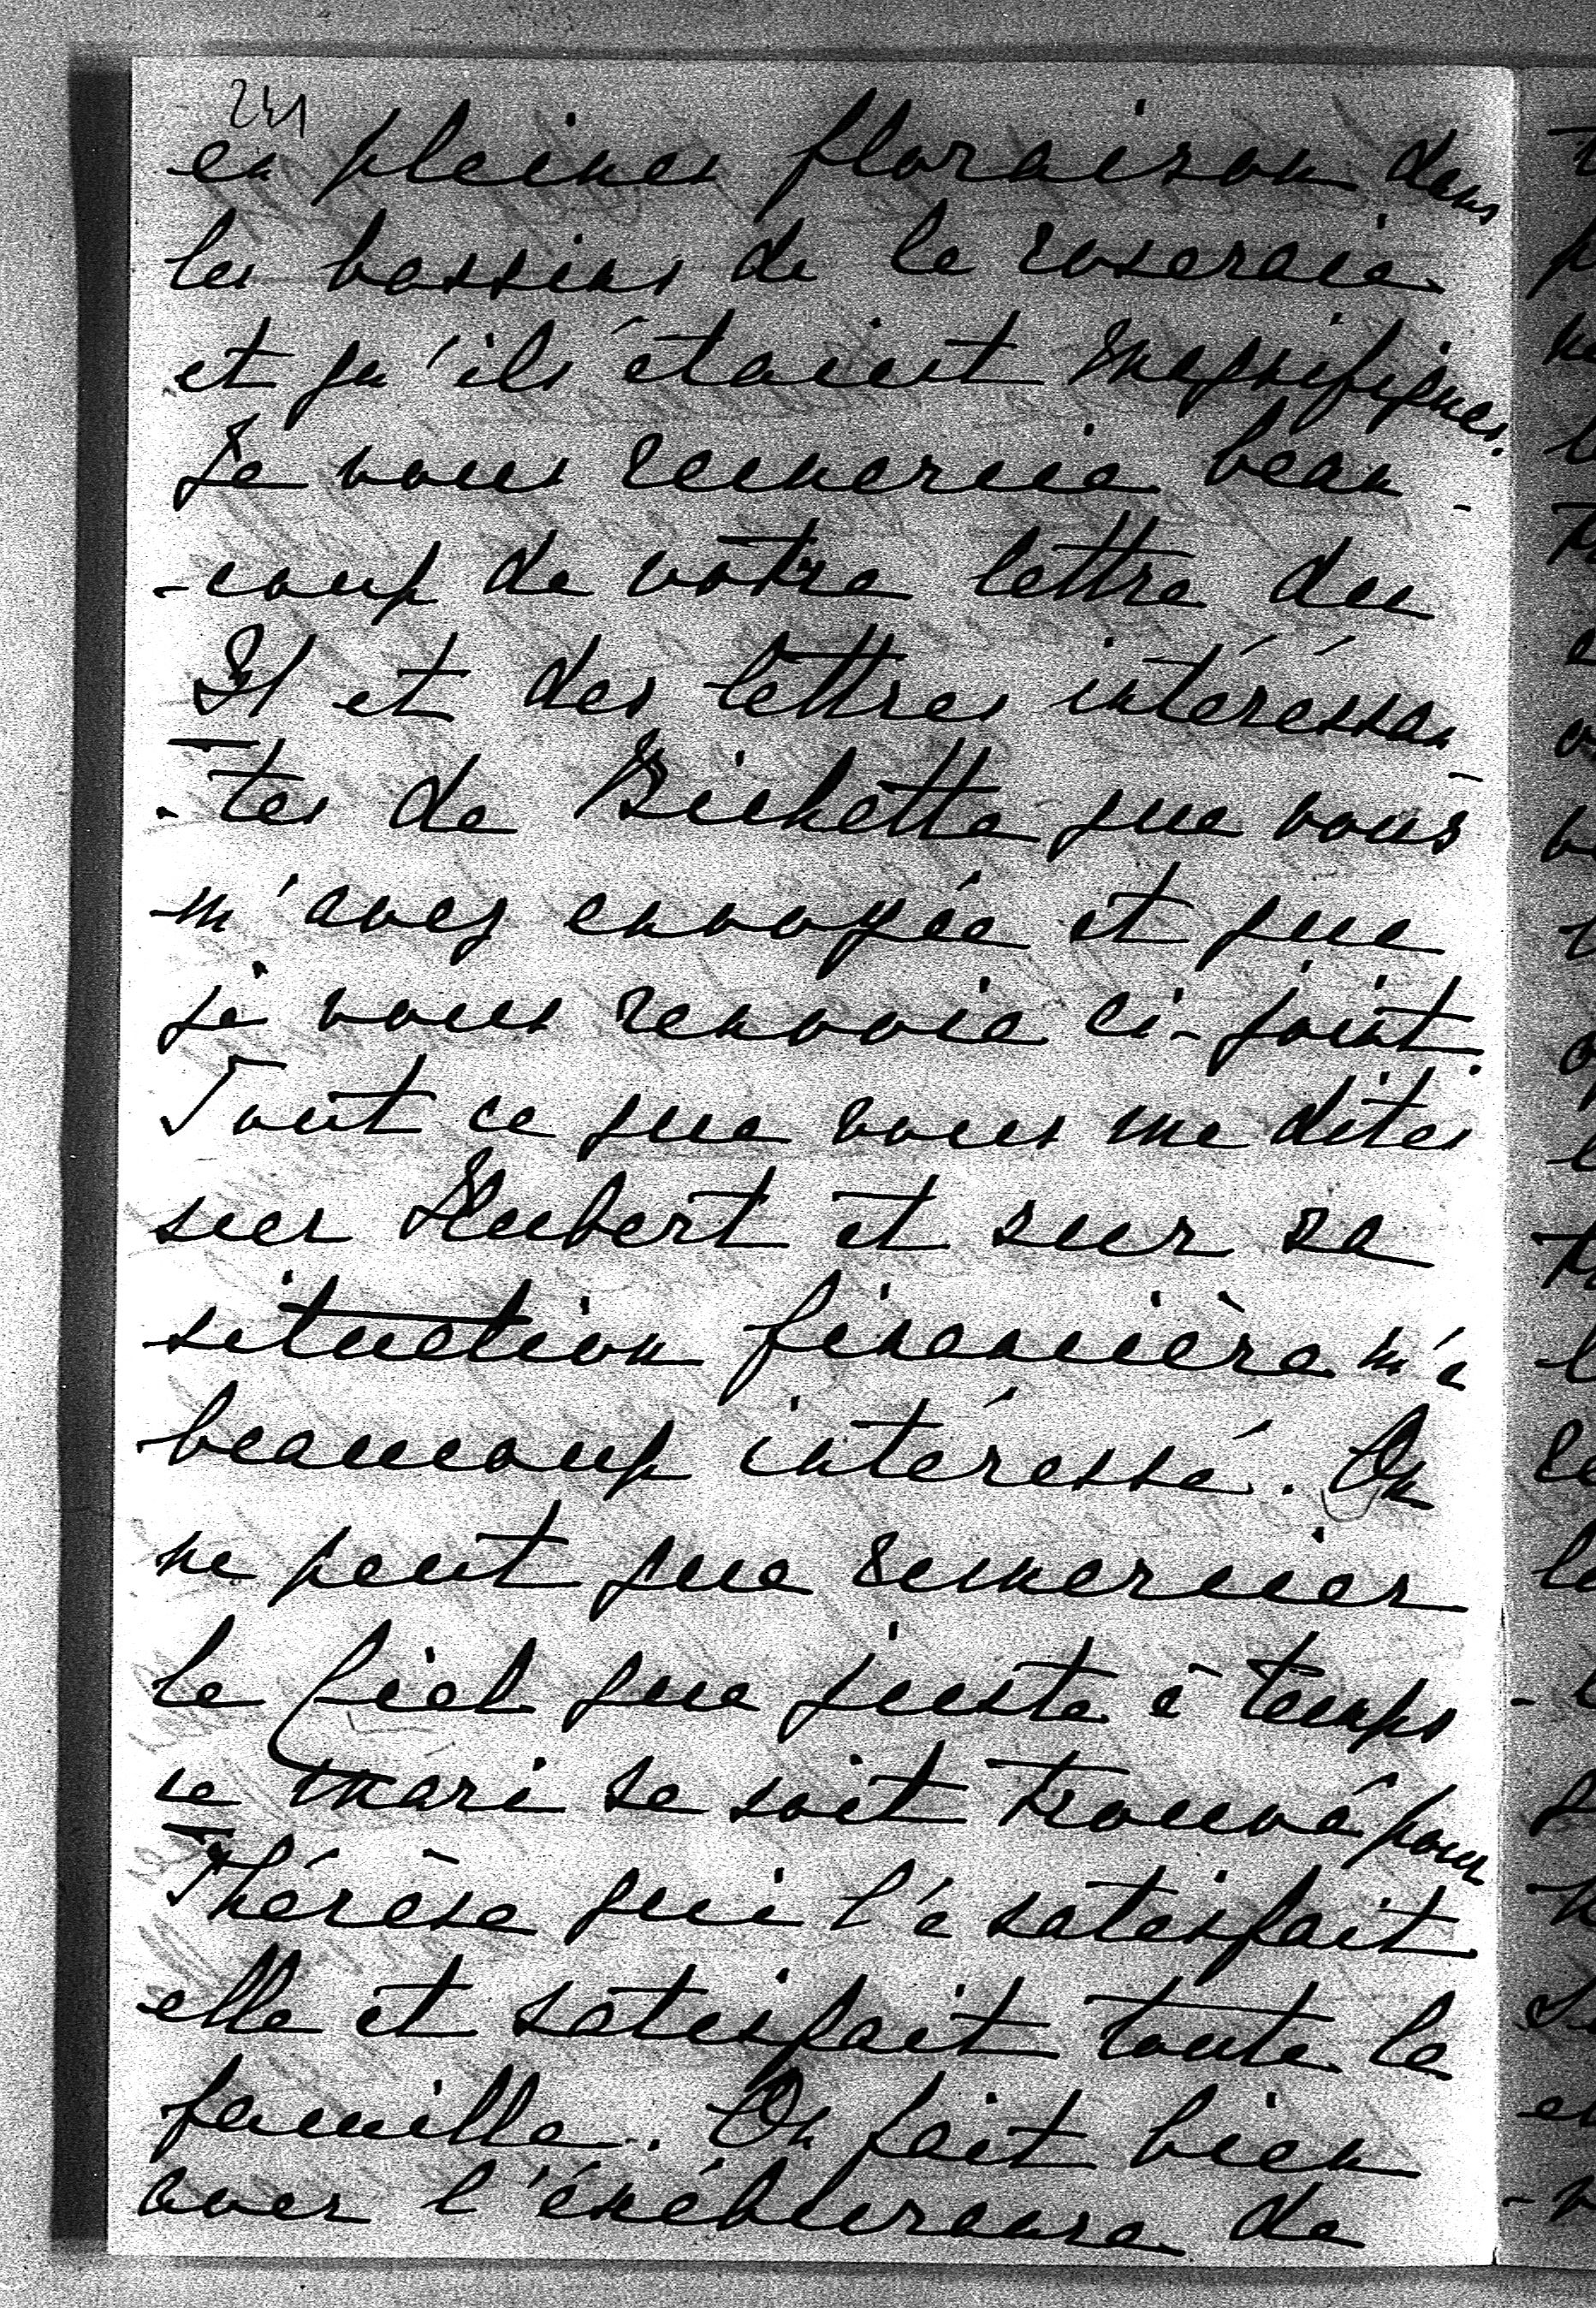 241
en pleines floraison dans
les bassins de la roseraie
et qu'ils étaient magnifiques.
Je vous remercie beau-
-coup de votre lettre du
31 et des lettres intéréssan-
-tes de Bichette que vous
m'avez envoyée et que
je vous renvoie ci-joint.
Tout ce que vous me dites
sur Hubert et sur sa
situation financière m'a
beaucoup intéressé. On
ne peut que remercier
le Ciel que juste à temps
ce mari se soit trouvé pour
Thérèse qui l'a satisfait
elle et satisfait toute la
famille. On fait bien
avec l'
de